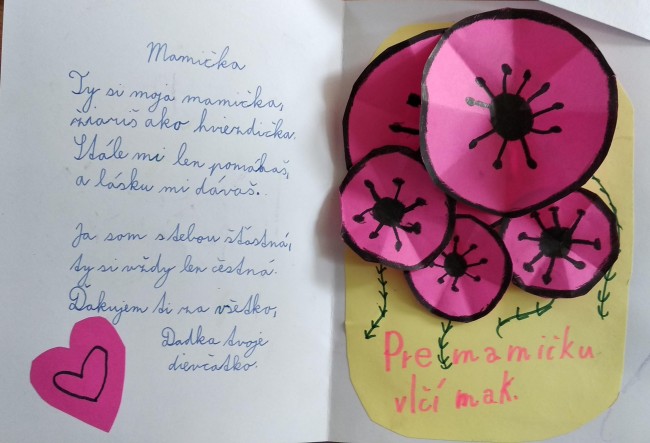 Mamička
Ty si moja mamička,
žiariš ako hviezdička.
Stále mi len pomáhaš,
a lásku mi dávaš.
Ja som s tebou šťastná,
ty si vždy len čestná.
Ďakujem ti za všetko,
Dadka tvoje
dievčatko.
Pre mamičku
vlčí mak.